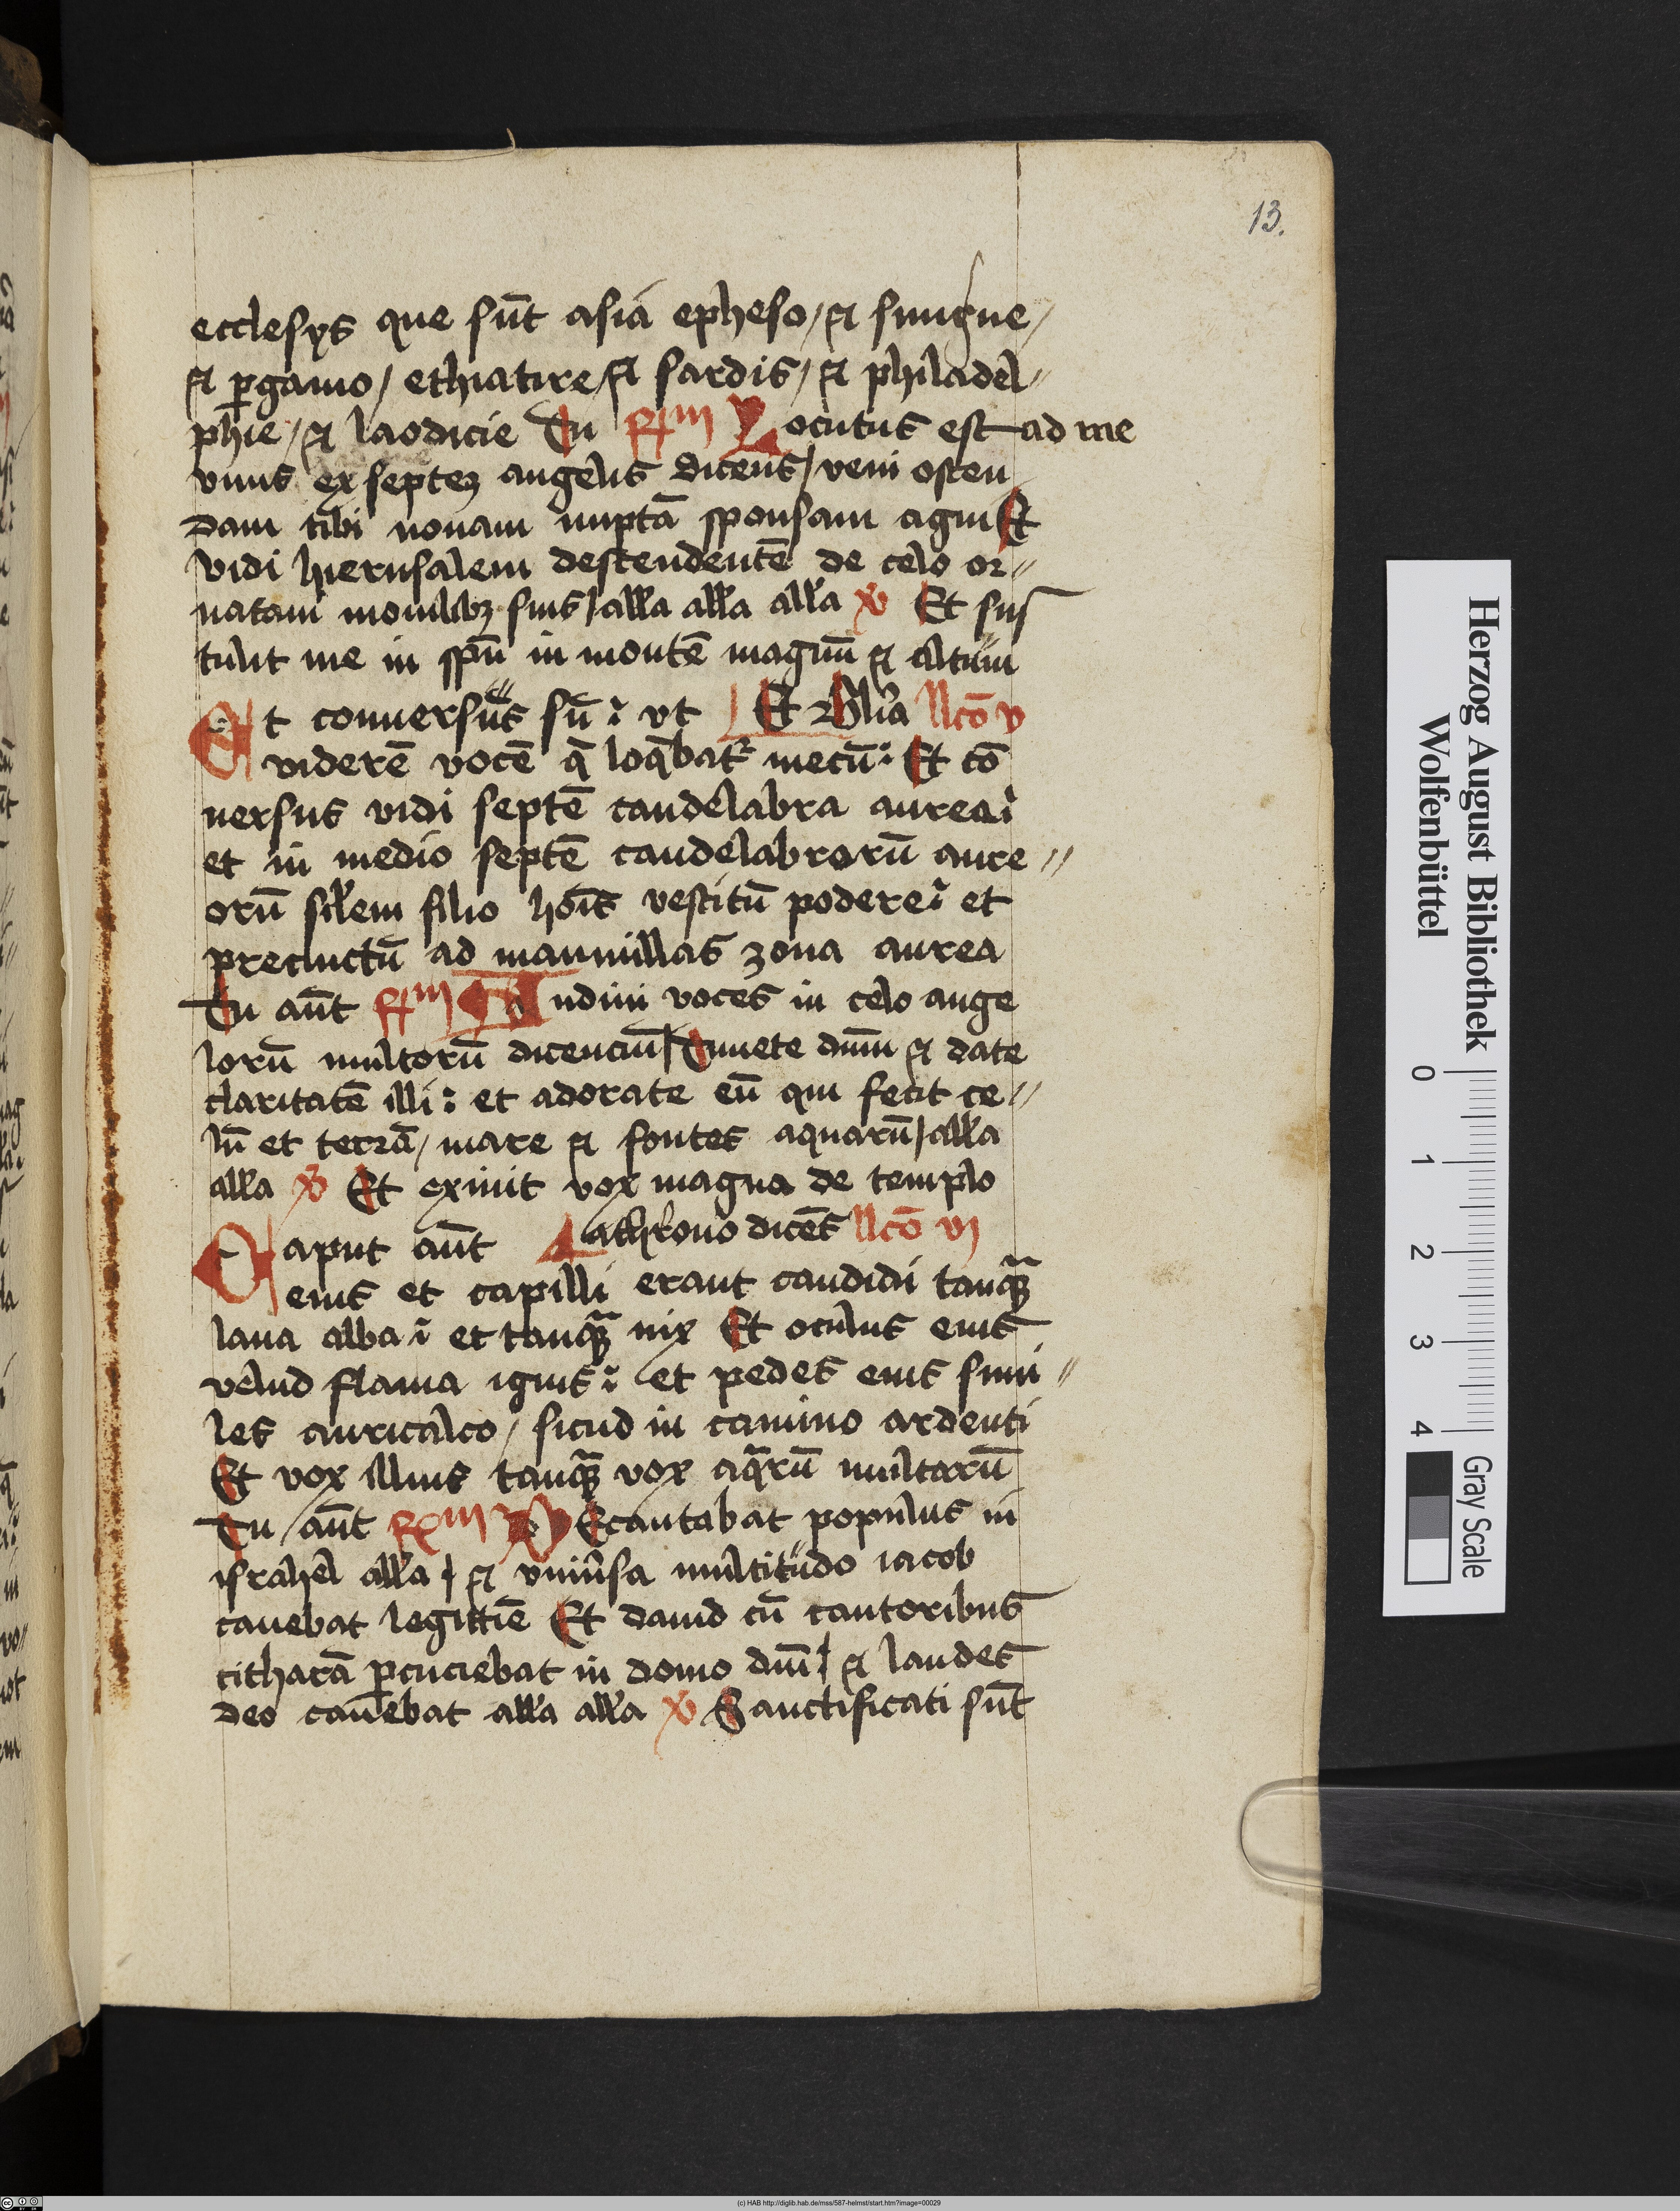 13.
ecclesÿs que sūt asia epheso / et smigne /
et ꝑgamo / ethiatire / et sardis / et philadel〃
phie / et laodicie Tu Rm Locutus est ad me
vnus ex septeꝫ angelis dicens / veni osten
dam tibi nouam nuptā sponsam agni Et
vidi hierusalem descendentē de celo or〃
natam monilibꝫ suis / all'a all'a all'a v Et sus
tulit me in spū in montē magnū et altum
Et conuersus sū : vt Et Gl'ia llco v
viderē vocē q̄ loq̄batr mecū : Et cō
uersus vidi septē candelabra aurea :
et in medio septē candelabrorū aure〃
orū sil'em filio hoīs vestitū podere : et
precinctū ad mammillas zona aurea
Tu aūt Rm Audiui voces in celo ange
lorū multorū dicenciū / Timete dnm et date
claritatē illi : et adorate eū qui fecit ce〃
lū et terrā / mare et fontes aquarū / all'a
all'a v Et exiuit vox magna de templo
Caput aūt a throno dicēs llco vi
eius et capilli erant candidi tanqꝫ
lana alba : et tanqꝫ nix Et oculus eius
velud flama ignis : et pedes eius simi〃
les auricalco / sicud in camino ardenti
Et vox illius tanqꝫ vox aq̄rū multarū
Tu aūt Rm DEcantabat populus in
israhel all'a / et vniu'sa multitudo iacob
canebat legittīe Et dauid cū cantoribus
citharā ꝑcuciebat in domo dnī / et laudes
deo canebat all'a all'a v Sanctificati sūt
Herzog August Bibliothek
Wolfenbüttel
0 1 2 3 4
Gray Scale
(c) HAB http://diglib.hab.de/mss/587-helmst/start.htm?image=00029